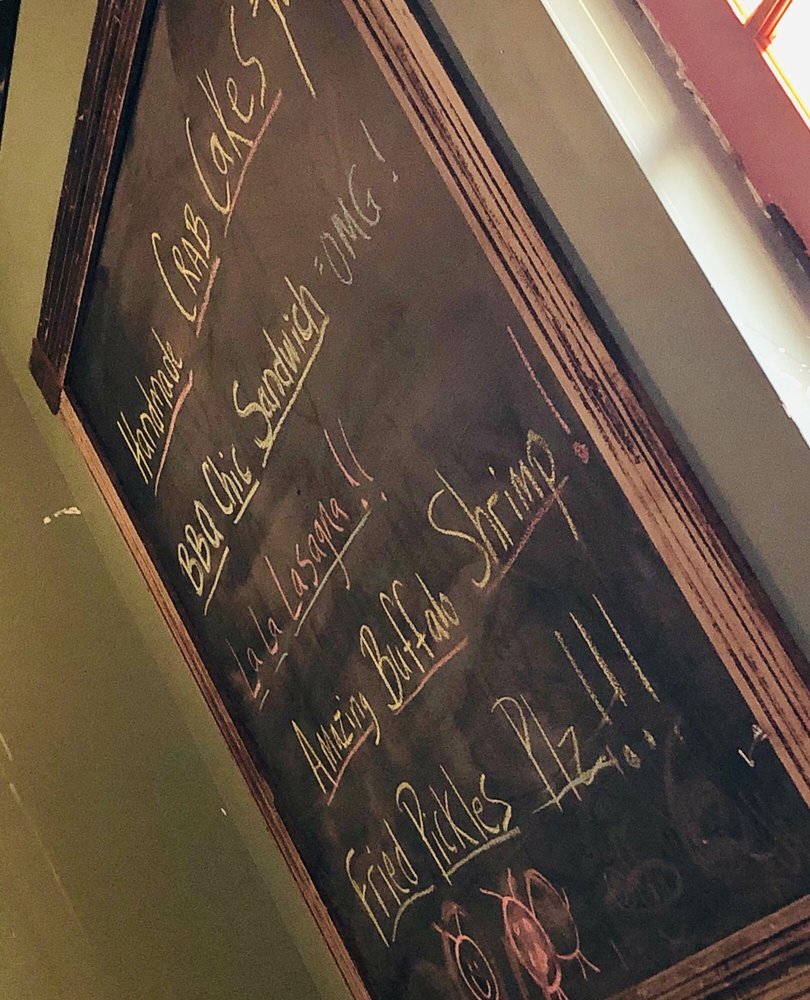 Handmade CRAB Cakes
BBQ Chic Sandwich - OMG!
LaLa Lasagna!!
Amazing Buffalo Shrimp!
Fried Pickles Plz!!!